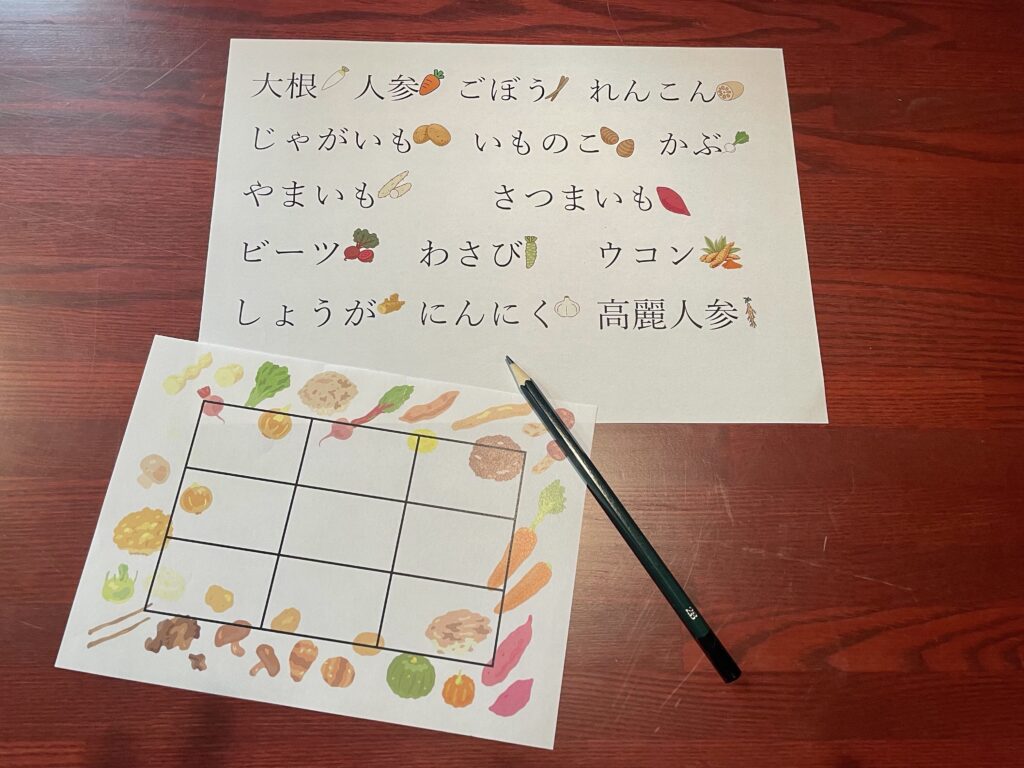 大根 人参 ごぼう れんこん
じゃがいも いものこ かぶ
やまいも さつまいも
ビーツ わさび ウコン
しょうが にんにく 高麗人参
2B